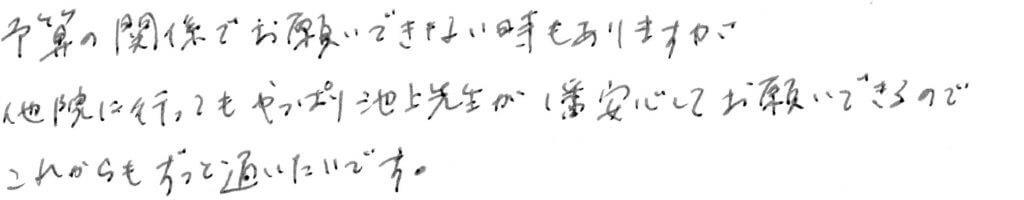 予算の関係でお願いできない時もありますが、
他院に行ってもやっぱり池上先生が1番安心してお願いできるので
これからもずっと通いたいです。